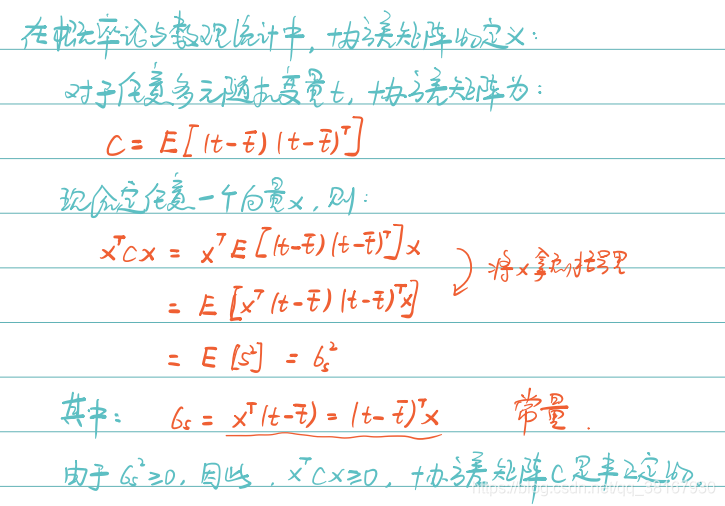 在概率论与数理统计中，协方差矩阵的定义：
对于任意多元随机变量t，协方差矩阵为：
C = E[(t-t̄)(t-t̄)ᵀ]
现给定任意一个向量x，则：
xᵀCx = xᵀE[(t-t̄)(t-t̄)ᵀ]x
将x拿到括号里
= E[xᵀ(t-t̄)(t-t̄)ᵀx]
= E[s²] = σₛ²
其中： σₛ = xᵀ(t-t̄) = (t-t̄)ᵀx 常量.
由于σₛ²≥0，因此，xᵀCx≥0，协方差矩阵C是半正定的。
https://blog.csdn.net/qq_38107930